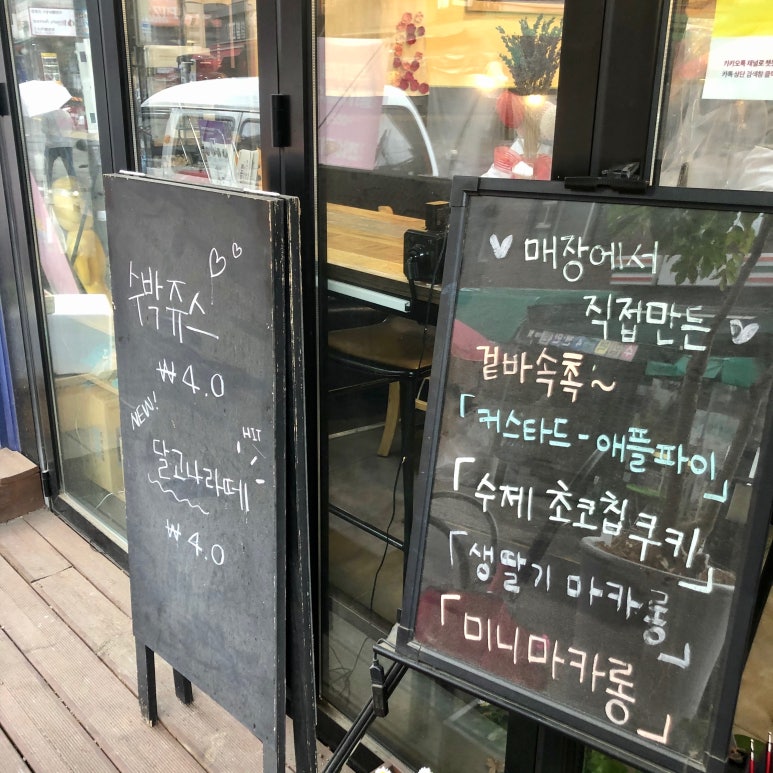 수박쥬스
₩4.0
NEW!
HIT
달고나라떼
₩4.0
매장에서
직접만든
겉바속촉~
「커스타드-애플파이」
「수제 초코칩쿠키」
「생딸기 마카롱」
「미니마카롱」
카카오톡 채널로